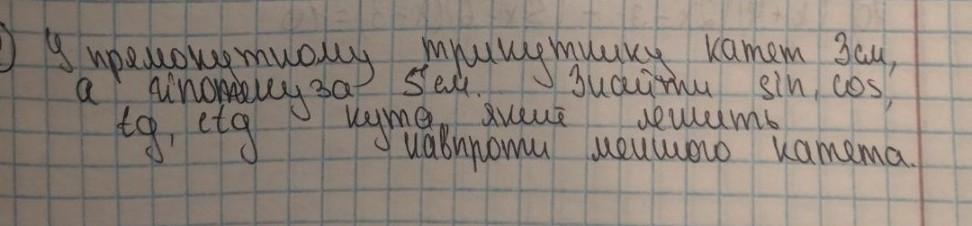 ) У прямокутному трикутнику катет 3см,
а гіпотенуза 5см. Знайти sin, cos,
tg, ctg кута, який лежить
навпроти меншого катета.